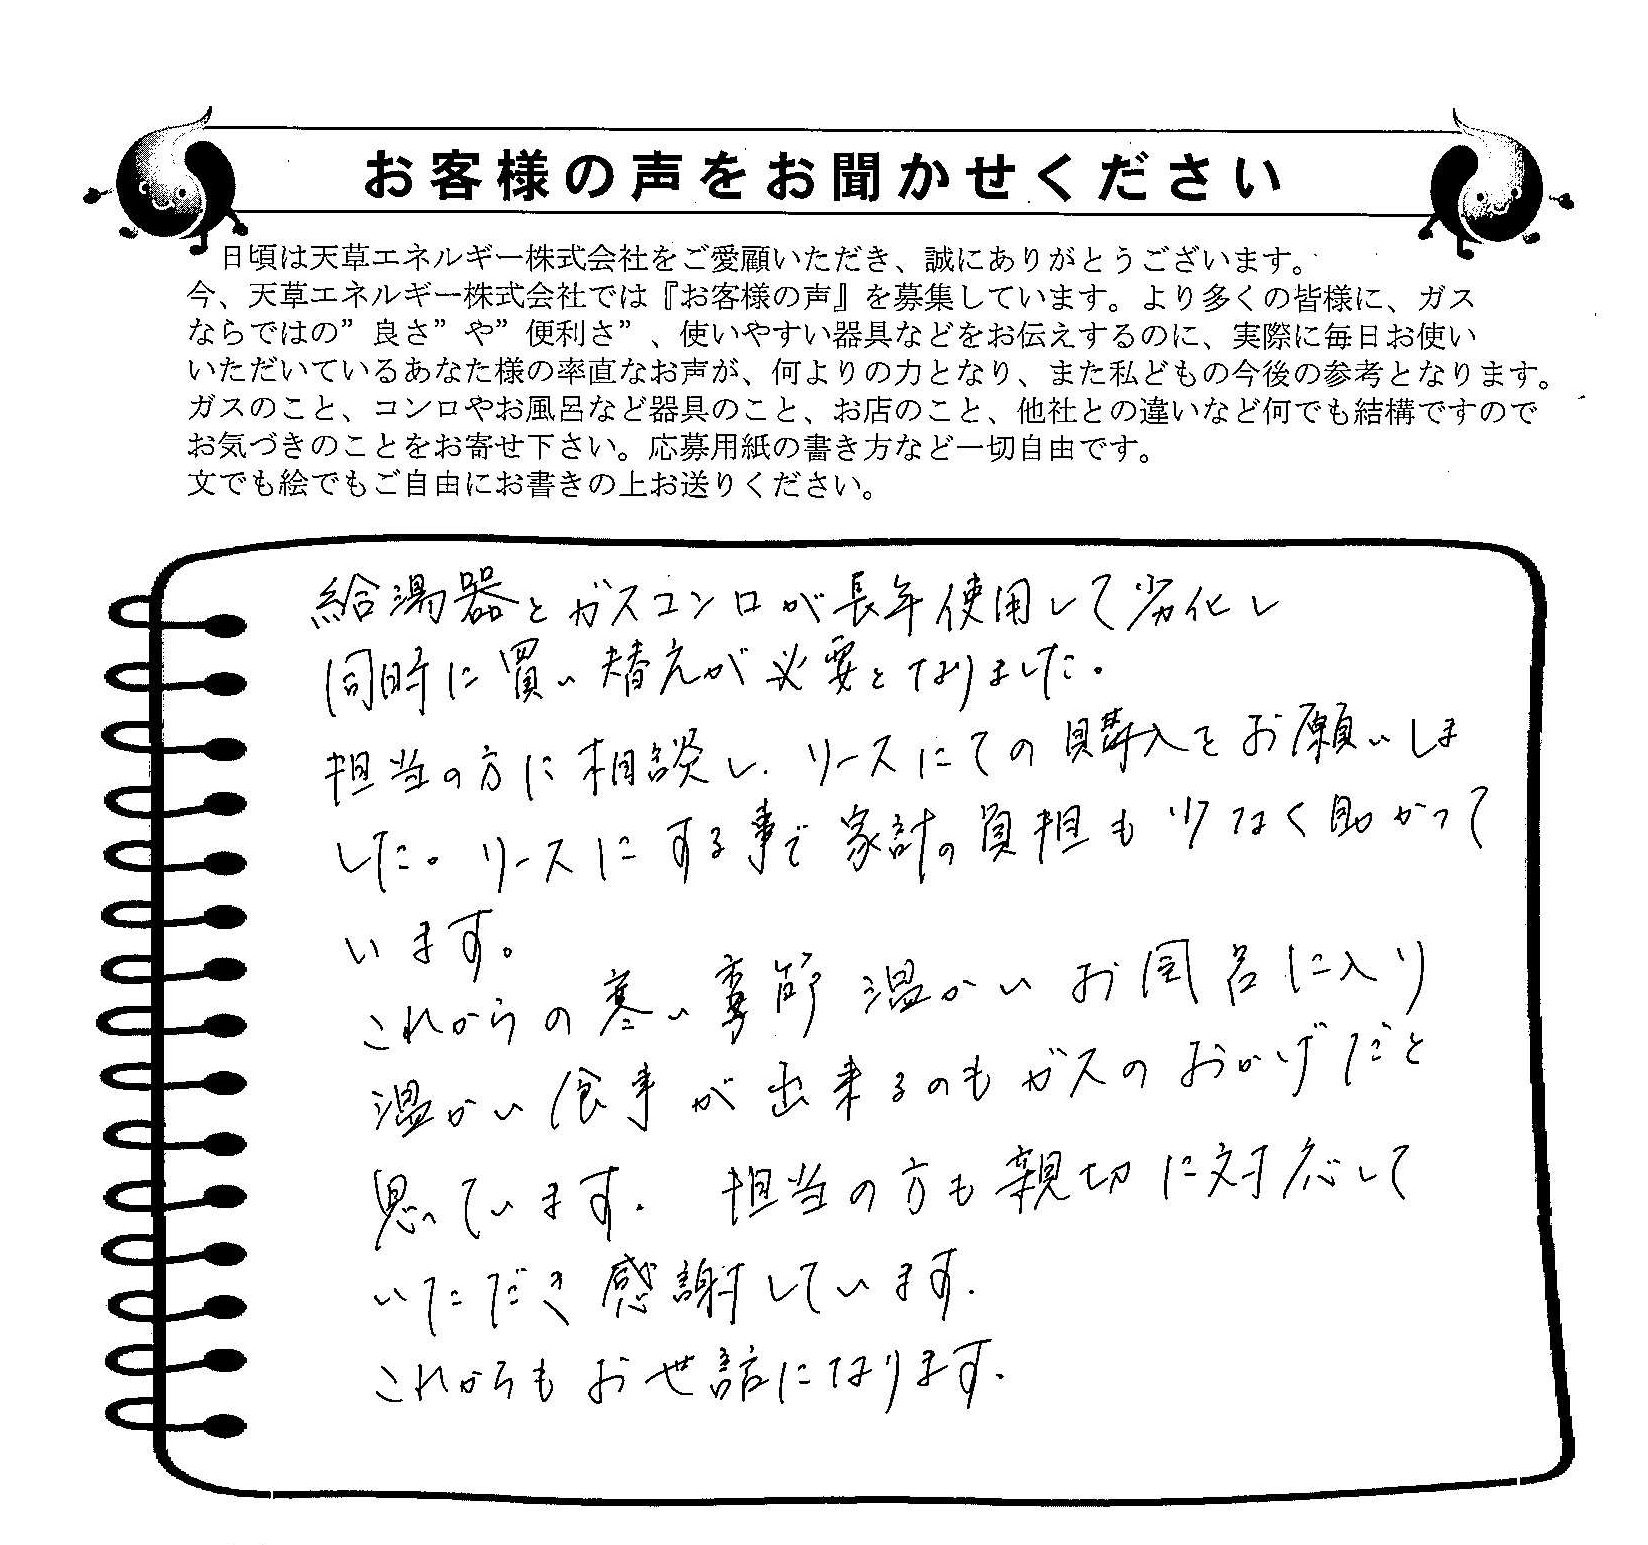 お客様の声をお聞かせください
日頃は天草エネルギー株式会社をご愛顧いただき、誠にありがとうございます。
今、天草エネルギー株式会社では『お客様の声』を募集しています。より多くの皆様に、ガス
ならではの”良さ”や”便利さ”、使いやすい器具などをお伝えするのに、実際に毎日お使い
いただいているあなた様の率直なお声が、何よりの力となり、また私どもの今後の参考となります。
ガスのこと、コンロやお風呂など器具のこと、お店のこと、他社との違いなど何でも結構ですので
お気づきのことをお寄せ下さい。応募用紙の書き方など一切自由です。
文でも絵でもご自由にお書きの上お送りください。
給湯器とガスコンロが長年使用して劣化し
同時に買い替えが必要となりました。
担当の方に相談し、リースにての購入をお願いしま
した。リースにする事で家計の負担も少なく助かって
います。
これからの寒い季節 温かいお風呂に入り
温かい食事が出来るのもガスのおかげだと
思っています。担当の方も親切に対応して
いただき感謝しています。
これからもお世話になります。